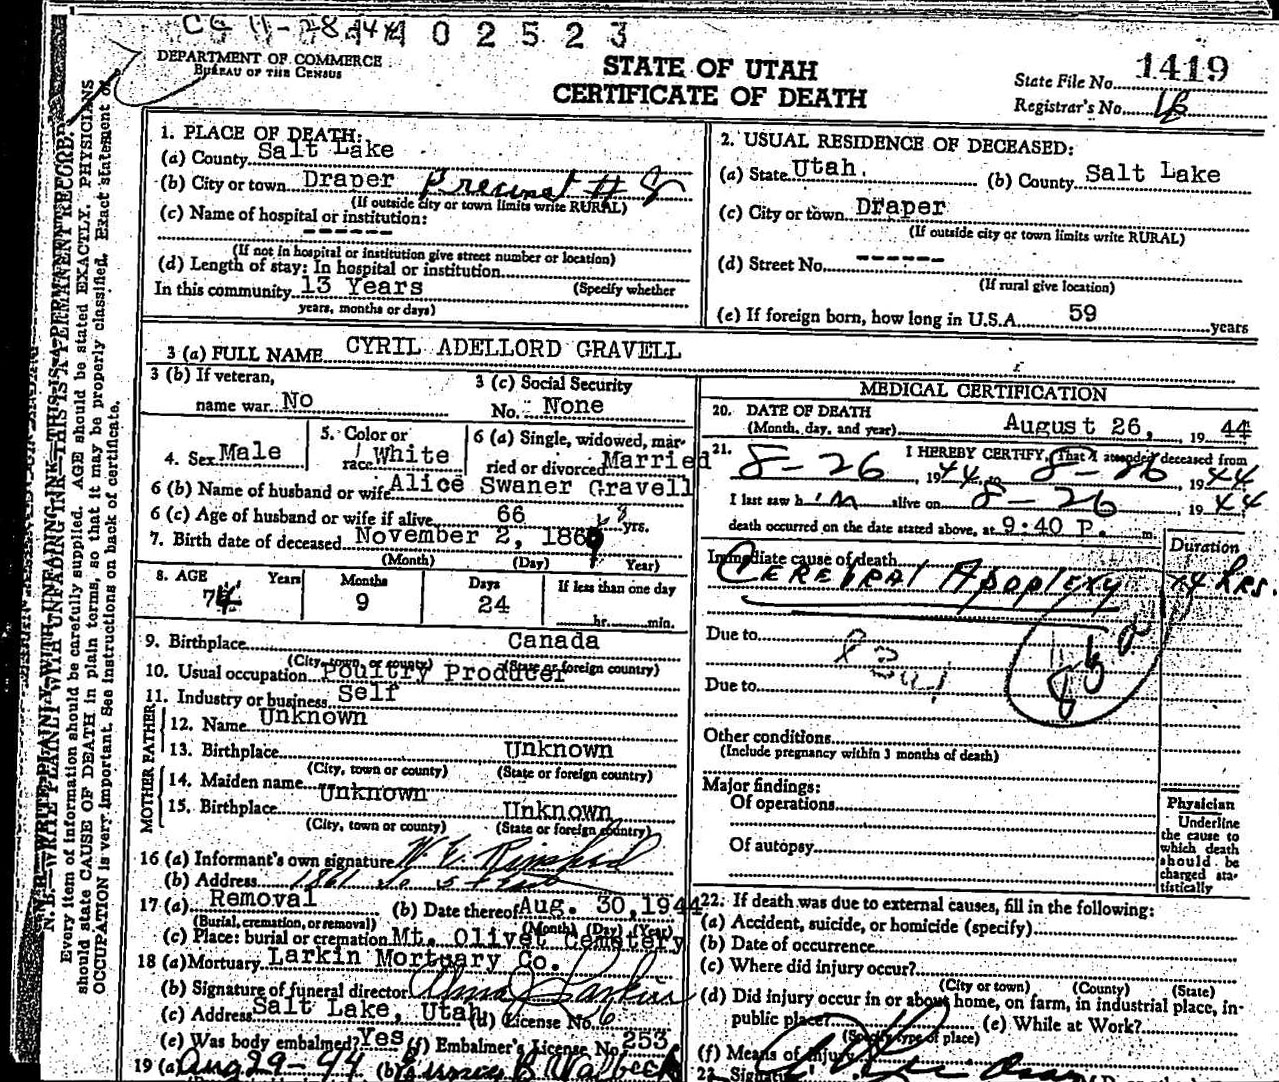 CG 11-28-44 02523
DEPARTMENT OF COMMERCE
BUREAU OF THE CENSUS
STATE OF UTAH
CERTIFICATE OF DEATH
State File No. 1419
Registrar's No.
N. B.—WRITE PLAINLY WITH UNFADING INK—THIS IS A PERMANENT RECORD.
Every item of information should be carefully supplied. AGE should be stated EXACTLY. PHYSICIANS
should state CAUSE OF DEATH in plain terms, so that it may be properly classified. Exact statement of
OCCUPATION is very important. See instructions on back of certificate.
1. PLACE OF DEATH:
(a) County Salt Lake
(b) City or town Draper Precinct # 8
(If outside city or town limits write RURAL)
(c) Name of hospital or institution:
------
(If not in hospital or institution give street number or location)
(d) Length of stay: In hospital or institution
In this community 13 Years (Specify whether
years, months or days)
2. USUAL RESIDENCE OF DECEASED:
(a) State Utah. (b) County Salt Lake
(c) City or town Draper
(If outside city or town limits write RURAL)
(d) Street No. ------
(If rural give location)
(e) If foreign born, how long in U.S.A. 59 years
3 (a) FULL NAME CYRIL ADELLORD GRAVELL
3 (b) If veteran,
name war No
3 (c) Social Security
No. None
4. Sex Male
5. Color or
race White
6 (a) Single, widowed, mar-
ried or divorced Married
6 (b) Name of husband or wife Alice Swaner Gravell
6 (c) Age of husband or wife if alive 66 yrs.
7. Birth date of deceased November 2, 1869
(Month) (Day) Year)
8. AGE Years Months Days If less than one day
74 9 24 hr. min.
9. Birthplace Canada
(City, town, or county) (State or foreign country)
10. Usual occupation Poultry Producer
11. Industry or business Self
FATHER
12. Name Unknown
13. Birthplace Unknown
(City, town or county) (State or foreign country)
MOTHER
14. Maiden name Unknown
15. Birthplace Unknown
(City, town or county) (State or foreign country)
16 (a) Informant's own signature
(b) Address 1861 So 5 East
17 (a) Removal (b) Date thereof Aug. 30, 1944
(Burial, cremation, or removal) (Month) (Day) (Year)
(c) Place: burial or cremation Mt. Olivet Cemetery
18 (a) Mortuary Larkin Mortuary Co.
(b) Signature of funeral director
(c) Address Salt Lake, Utah (d) License No. 6
(e) Was body embalmed? Yes (f) Embalmer's License No. 253
19 (a) Aug 29-44 (b)
MEDICAL CERTIFICATION
20. DATE OF DEATH
(Month, day, and year) August 26, 19 44
21. I HEREBY CERTIFY, That I attended deceased from
8-26, 1944, to 8-26, 1944
I last saw him alive on 8-26, 1944
death occurred on the date stated above, at 9:40 P. m.
Duration
Immediate cause of death
Cerebral Apoplexy 4 hrs.
Due to
Due to
Other conditions
(Include pregnancy within 3 months of death)
Major findings:
Of operations
Of autopsy
Physician
Underline
the cause to
which death
should be
charged sta-
tistically
22. If death was due to external causes, fill in the following:
(a) Accident, suicide, or homicide (specify)
(b) Date of occurrence
(c) Where did injury occur?
(City or town) (County) (State)
(d) Did injury occur in or about home, on farm, in industrial place, in-
public place? (e) While at Work?
(Specify type of place)
(f) Means of Injury
23. Signature